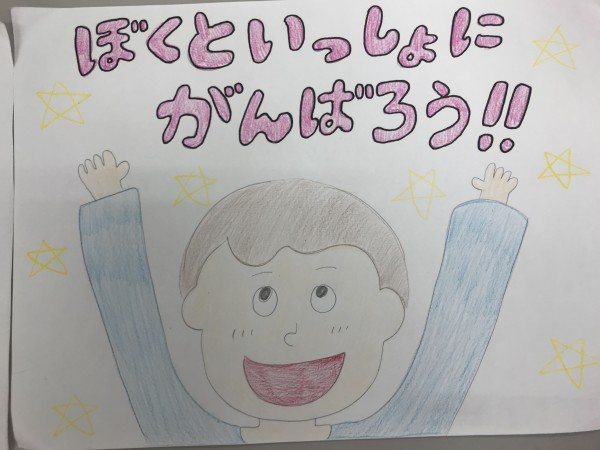 ぼくといっしょに
がんばろう!!